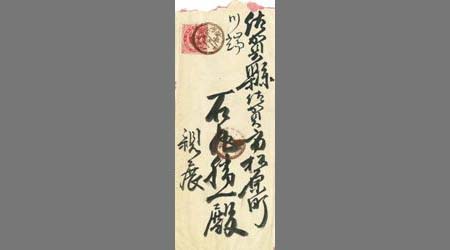 佐賀縣佐賀市松原町
川端
石丸勝一殿
親展